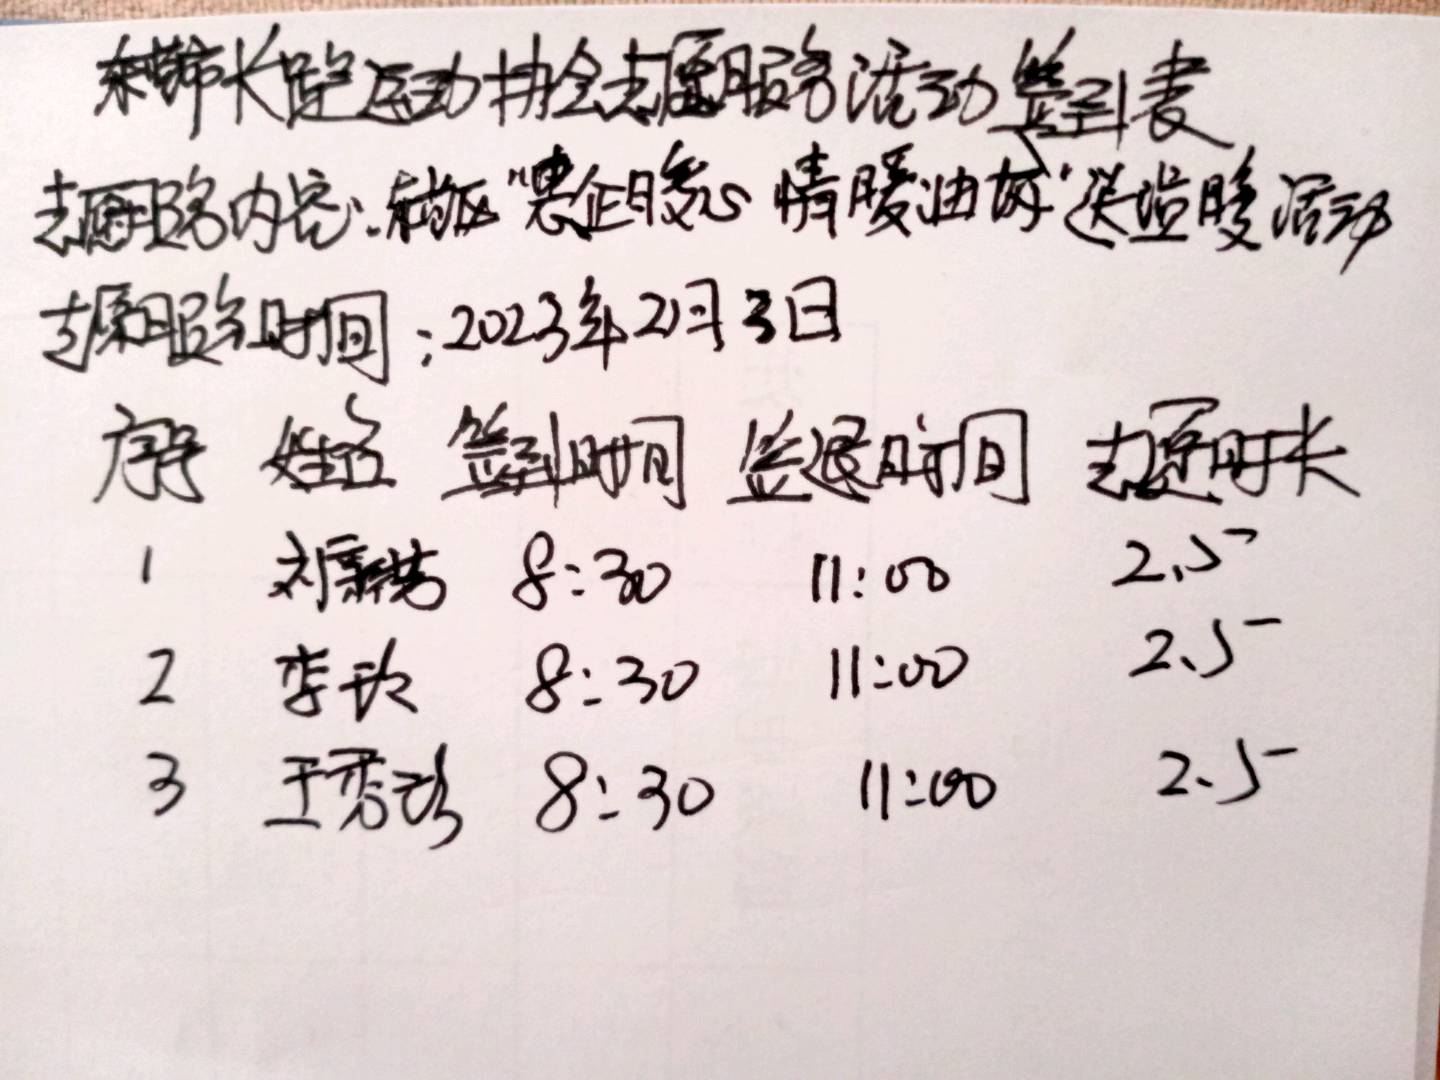 东营市长跑运动协会志愿服务活动签到表
志愿服务内容:东营区"惠企暖心 情暖油城"送温暖活动
志愿服务时间:2023年2月3日
序号 姓名 签到时间 签退时间 志愿时长
1 刘 8:30 11:00 2.5
2 李玲 8:30 11:00 2.5
3 王秀珍 8:30 11:00 2.5